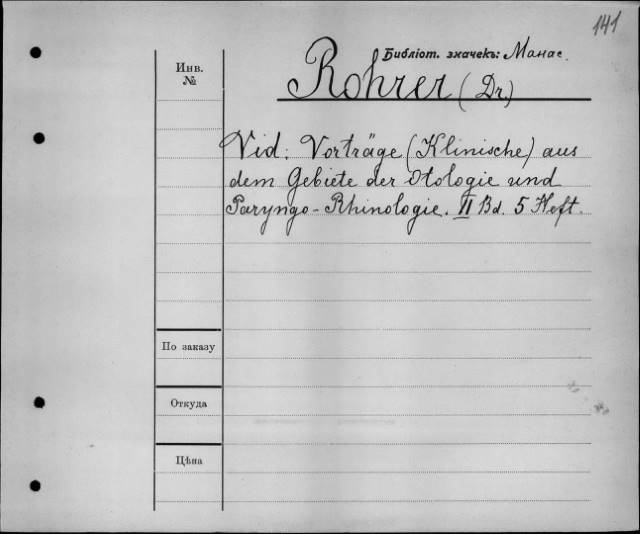 141
Библіот. значекъ: Манас.
Инв.
№
Rohrer (Dr.)
Vid: Vorträge (Klinische) aus
dem Gebiete der Otologie und
Paryngo-Rhinologie. II Bd. 5 Heft.
По заказу
Откуда
Цѣна